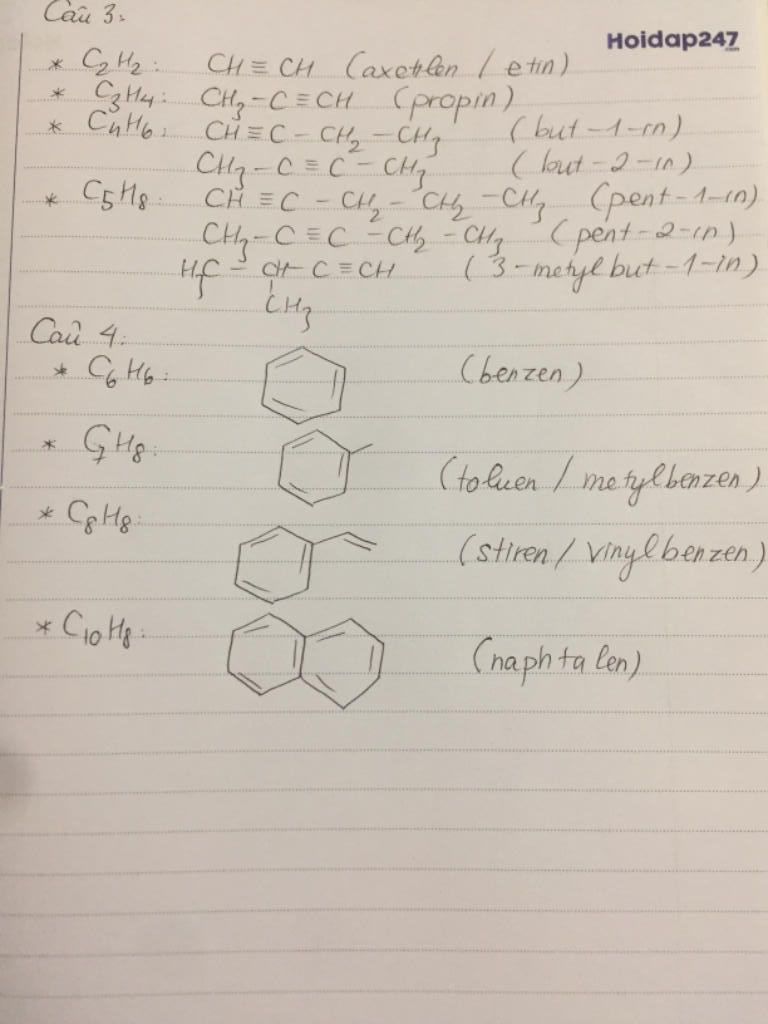 Câu 3:
Hoidap247
* C₂H₂: CH≡CH (axetilen / etin)
* C₃H₄: CH₃-C≡CH (propin)
* C₄H₆: CH≡C-CH₂-CH₃ (but-1-in)
CH₃-C≡C-CH₃ (but-2-in)
* C₅H₈: CH≡C-CH₂-CH₂-CH₃ (pent-1-in)
CH₃-C≡C-CH₂-CH₃ (pent-2-in)
H₃C-CH-C≡CH (3-metylbut-1-in)
CH₃
Câu 4:
* C₆H₆: (benzen)
* C₇H₈: (toluen / metylbenzen)
* C₈H₈: (stiren / vinylbenzen)
* C₁₀H₈: (naphtalen)